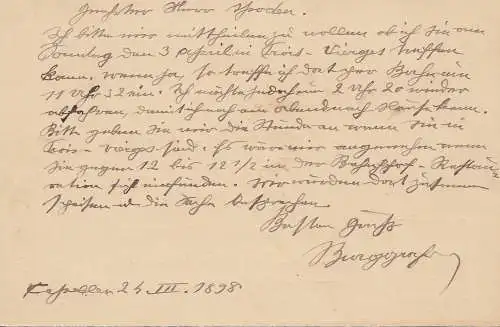 Geehrter Herr
Ich bitte mir mittheilen zu wollen ob ich Sie am
Sonntag den 3 April in Trois-Vierges treffen
kann. Wenn ja, so treffe ich dort per Bahn um
11 Uhr 52 ein. Ich möchte jedoch um 2 Uhr 20 wieder
abfahren, damit ich noch am Abend nach Hause kann.
Bitte geben Sie mir die Stunde an wann Sie in
Trois-vierges sind. Es wäre mir angenehm wenn
Sie gegen 12 bis 12 1/2 in der Bahnhof-Restau-
ration sich einfinden. Wir würden dort zusammen
speisen u die Sache besprechen.
Besten Gruß
Burggraf
24 III. 1898